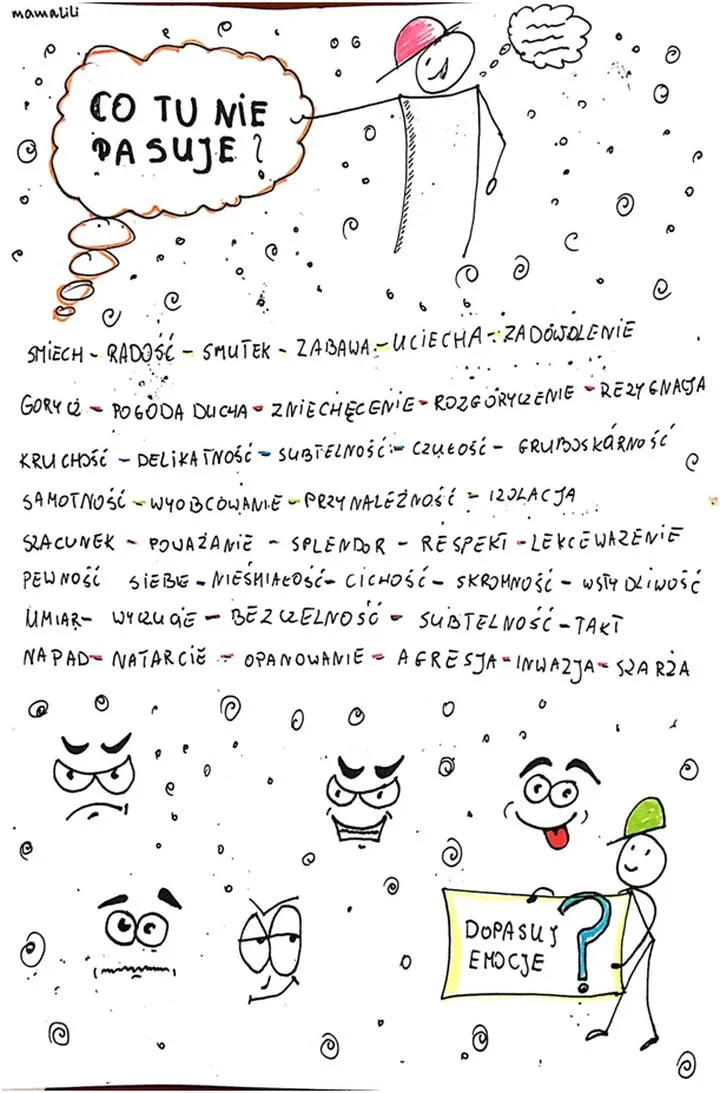 mamalili
CO TU NIE
PASUJE?
ŚMIECH - RADOŚĆ - SMUTEK - ZABAWA - UCIECHA - ZADOWOLENIE
GORYCZ - POGODA DUCHA - ZNIECHĘCENIE - ROZGORYCZENIE - REZYGNACJA
KRUCHOŚĆ - DELIKATNOŚĆ - SUBTELNOŚĆ - CZUŁOŚĆ - GRUBOSKÓRNOŚĆ
SAMOTNOŚĆ - WYOBCOWANIE - PRZYNALEŻNOŚĆ - IZOLACJA
SZACUNEK - POWAŻANIE - SPLENDOR - RESPEKT - LEKCEWAŻENIE
PEWNOŚĆ SIEBIE - NIEŚMIAŁOŚĆ - CICHOŚĆ - SKROMNOŚĆ - WSTYDLIWOŚĆ
UMIAR - WYCZUCIE - BEZCZELNOŚĆ - SUBTELNOŚĆ - TAKT
NAPAD - NATARCIE - OPANOWANIE - AGRESJA - INWAZJA - SZARŻA
DOPASUJ
EMOCJE
?